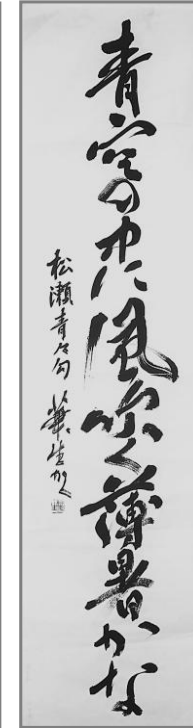 青空の中に風吹く薄暑かな
松瀬青々句 華生かく